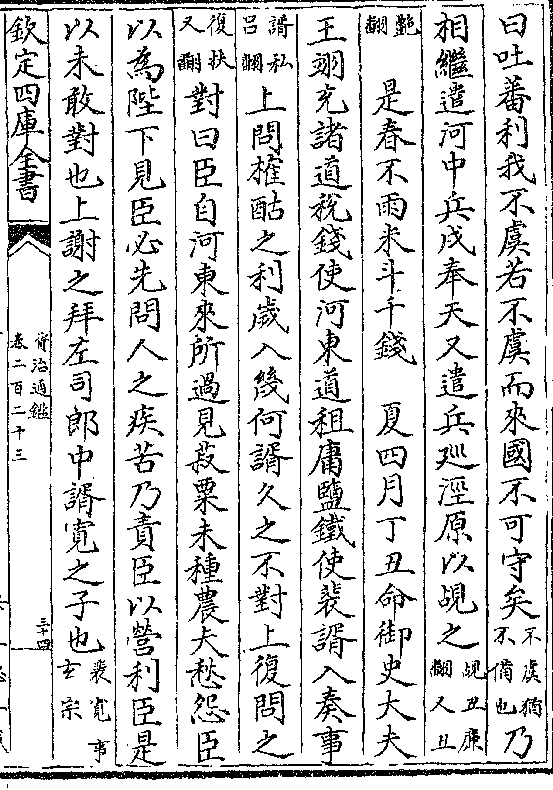 曰吐蕃利我不虞若不虞而來國不可守矣不虞猶不備也乃
相繼遣河中兵戍奉天又遣兵廵涇原以覘之覘丑廉翻又丑
艶翻　是春不雨米斗千錢　夏四月丁丑命御史大夫
王翊充諸道稅錢使河東道租庸鹽鐵使裴諝入奏事
諝私呂翻上問榷酤之利歲入幾何諝久之不對上復問之
復扶又翻對曰臣自河東來所過見菽粟未種農夫愁怨臣
以為陛下見臣必先問人之疾苦乃責臣以營利臣是
以未敢對也上謝之拜左司郎中諝寛之子也裴寛事玄宗
欽定四庫全書
資治通鑑
卷二百二十三
三十四